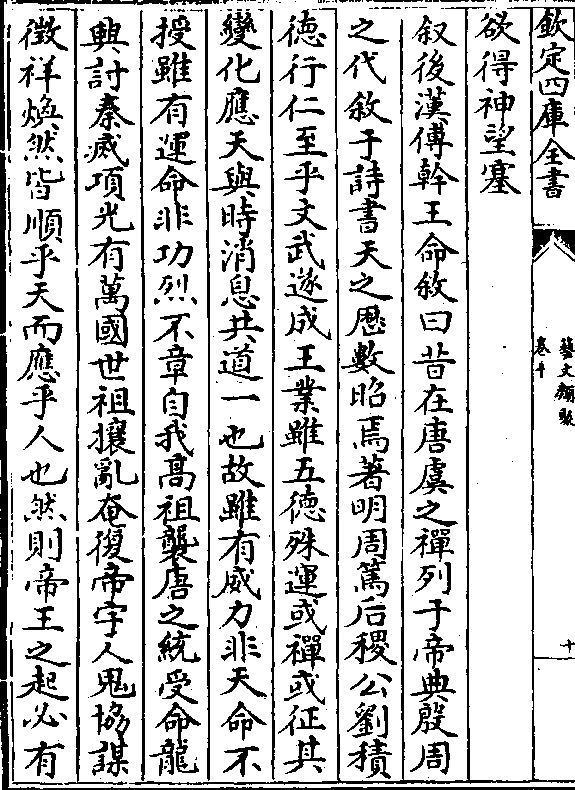 欽定四庫全書
藝文類聚
卷十
十
欲得神望塞
叙後漢傅幹王命敘曰昔在唐虞之禪列于帝典殷周
之代敘于詩書天之厯數昭焉著明周篤后稷公劉積
徳行仁至乎文武遂成王業雖五徳殊運或禪或征其
變化應天與時消息其道一也故雖有威力非天命不
授雖有運命非功烈不章自我髙祖襲唐之統受命龍
興討秦滅項光有萬國世祖攘亂奄復帝宇人鬼協謀
徴祥煥然皆順乎天而應乎人也然則帝王之起必有